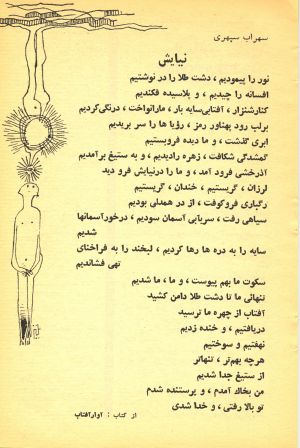 سهراب سپهری
نیایش
نور را پیمودیم ، دشت طلا را در نوشتیم
افسانه را چیدیم ، و پلاسیده فکندیم
کنارشنزار ، آفتابی سایه بار ، مارا نواخت ، درنگی کردیم
بر لب رود پهناور رمز ، رؤیا ها را سر بریدیم
ابری گذشت ، و ما دیده فروبستیم
گمشدگی شکافت ، زهره را دیدیم ، و به ستیغ برآمدیم
آذرخشی فرود آمد ، و ما را در نیایش فرو دید
لرزان ، گریستیم ، خندان ، گریستیم
رگباری فرو کوفت ، از در همدلی بودیم
سیاهی رفت ، سر بآبی آسمان سودیم ، در خور آسمانها
شدیم
سایه را به دره ها رها کردیم ، لبخند را به فراخنای
تهی فشاندیم
سکوت ما بهم پیوست ، و ما ، ما شدیم
تنهائی ما تا دشت طلا دامن کشید
آفتاب از چهره ما ترسید
دریافتیم ، و خنده زدیم
نهفتیم و سوختیم
هر چه بهم تر ، تنهاتر
از ستیغ جدا شدیم
من بخاک آمدم ، و پرستنده شدم
تو بالا رفتی ، و خدا شدی
از کتاب : آوار آفتاب